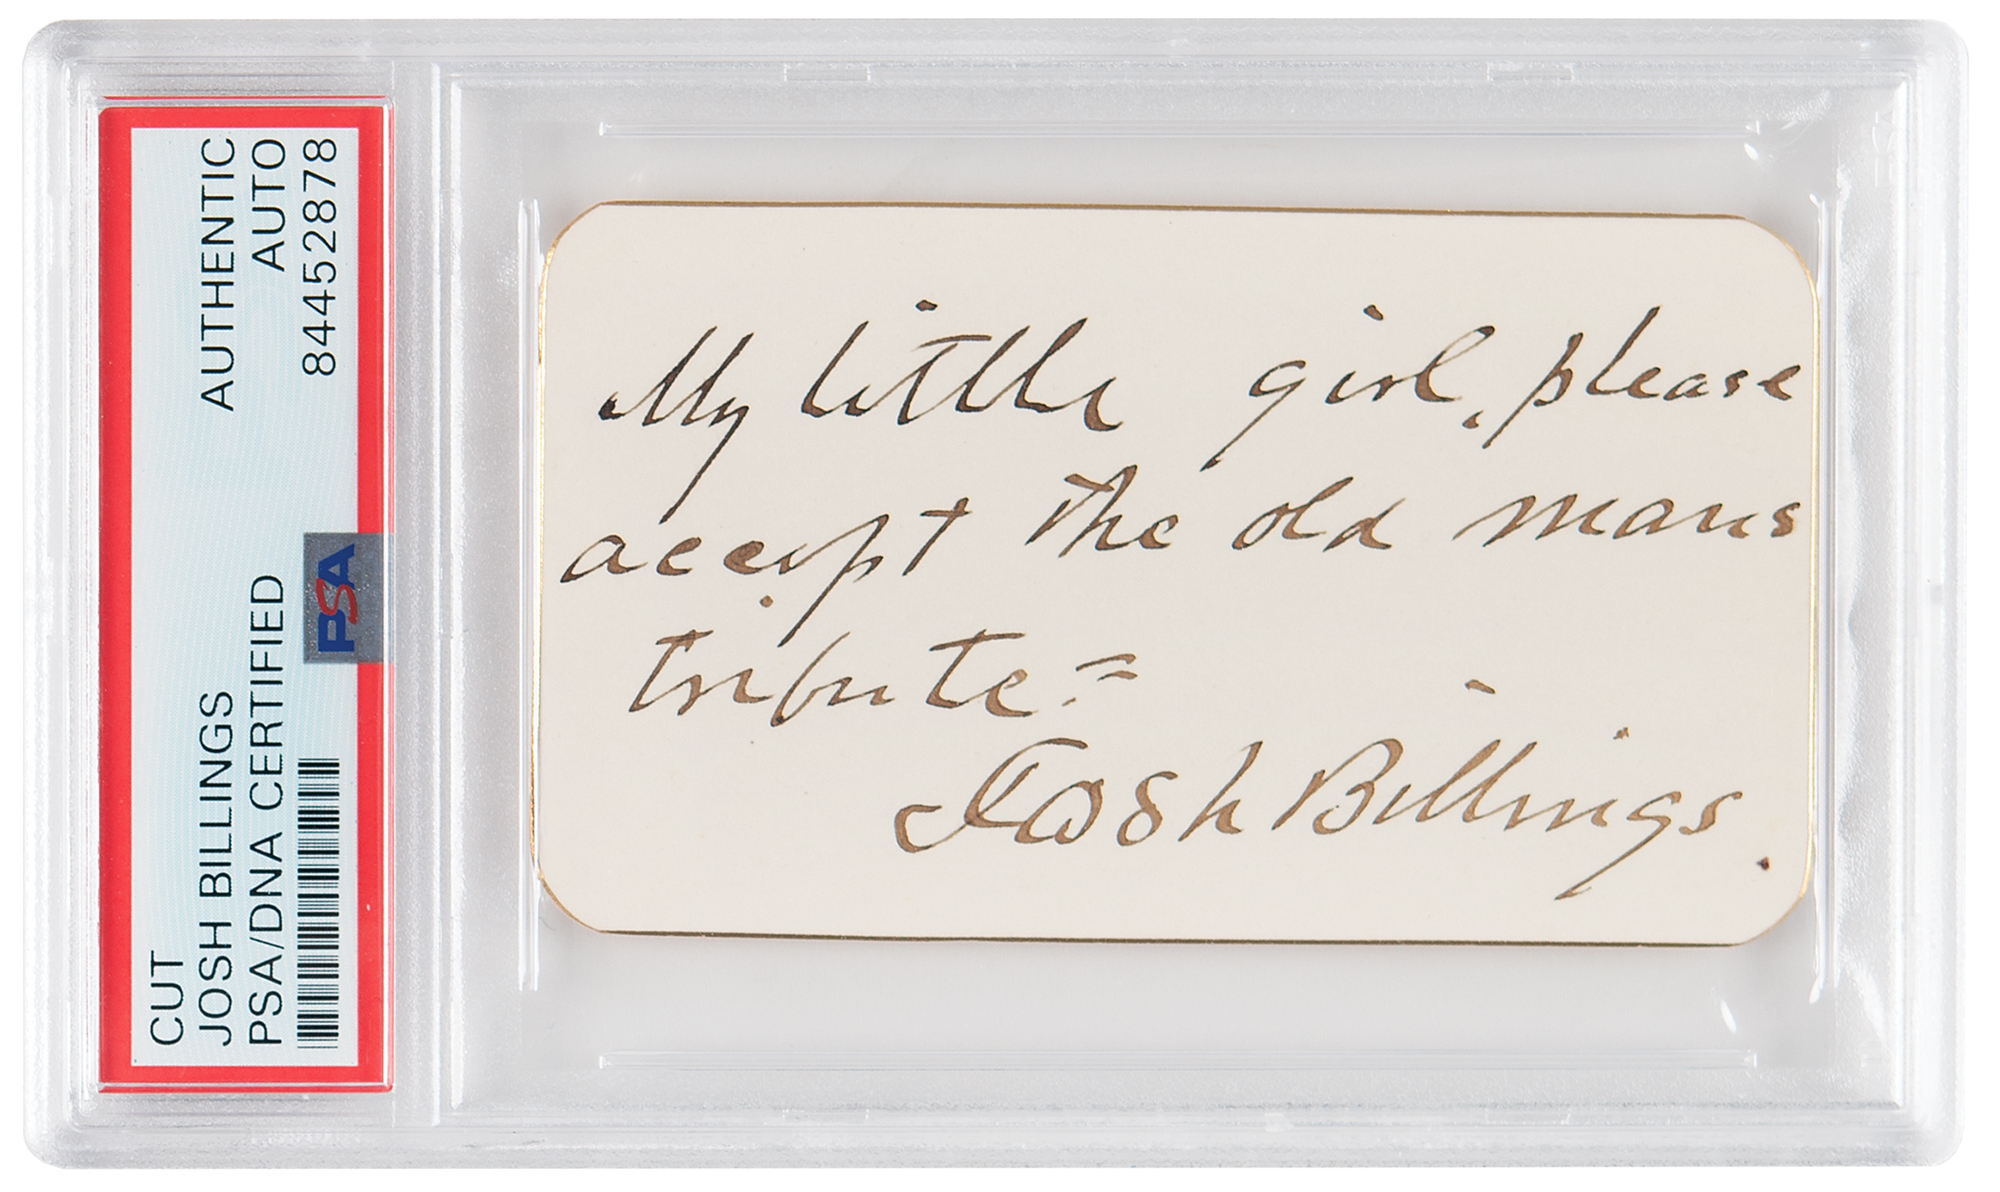 CUT
JOSH BILLINGS
PSA/DNA CERTIFIED
AUTHENTIC
AUTO
84452878
PSA
My little girl, please
acceipt the old mans
tribute =
Josh Billings.